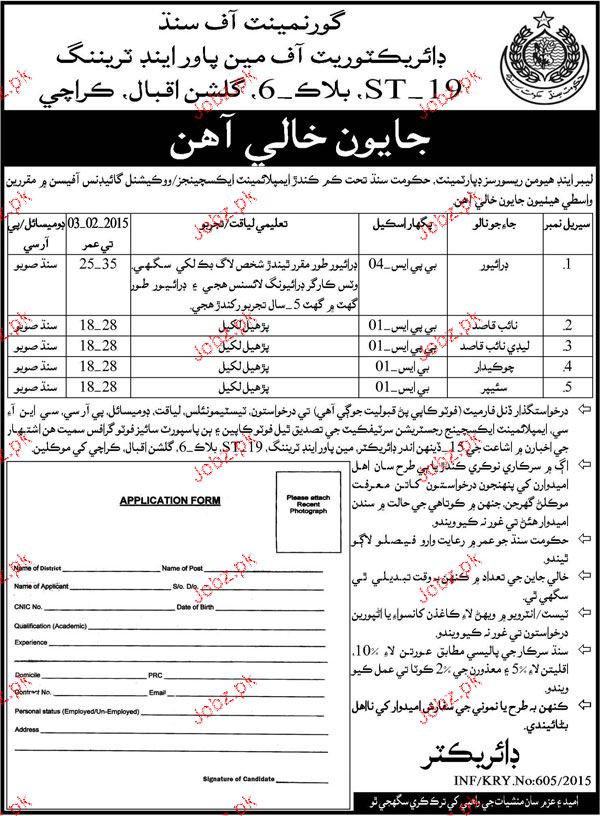 گورنمينٽ آف سنڌ
ڊائريڪٽوريٽ آف مين پاور اينڊ ٽريننگ
ST_19، بلاڪ_6، گلشن اقبال، ڪراچي
حڪومت سنڌ
جايون خالي آهن
ليبر اينڊ هيومن ريسورسز ڊپارٽمينٽ، حڪومت سنڌ تحت ڪم ڪندڙ ايمپلائمينٽ ايڪسچينجز/ووڪيشنل گائيڊنس آفيسن ۾ مقررين
واسطي هيٺيون جايون خالي آهن.
سيريل نمبر جاءِ جو نالو پگهار اسڪيل تعليمي لياقت/تجربو 03_02_2015 تي عمر ڊوميسائل/پي آر سي
1. ڊرائيور بي پي ايس_04 ڊرائيور طور مقرر ٿيندڙ شخص لاگ بڪ لکي سگهي. 25_35 سنڌ صوبو
وٽس ڪارگر ڊرائيونگ لائسنس هجي ۽ ڊرائيور طور
گهٽ ۾ گهٽ 5_سال تجربو رکندڙ هجي.
2. نائب قاصد بي پي ايس_01 پڙهيل لکيل 18_28 سنڌ صوبو
3. ليڊي نائب قاصد بي پي ايس_01 پڙهيل لکيل 18_28 سنڌ صوبو
4. چوڪيدار بي ايس_01 پڙهيل لکيل 18_28 سنڌ صوبو
5. سئيپر بي ايس_01 پڙهيل لکيل 18_28 سنڌ صوبو
درخواستگذار ڏنل فارميٽ (فوٽو ڪاپي پڻ قبوليت جوڳي آهي) تي درخواستون، ٽيسٽيمونئلس، لياقت، ڊوميسائل، پي آر سي، سي اين آءِ
سي، ايمپلائمينٽ ايڪسچينج رجسٽريشن سرٽيفڪيٽ جي تصديق ٿيل فوٽو ڪاپين ۽ ٻن پاسپورٽ سائيز فوٽو گرافس سميت هن اشتهار
جي اخبارن ۾ اشاعت جي 15_ڏينهن اندر ڊائريڪٽر، مين پاور اينڊ ٽريننگ، ST_19، بلاڪ_6، گلشن اقبال، ڪراچي کي موڪلين.
اڳ ۾ سرڪاري نوڪري ڪندڙ يا ٻي طرح سان اهل
اميدوارن کي پنهنجون درخواستون کاتن معرفت
موڪلڻ گهرجن، جنهن ۾ ڪوتاهي جي حالت ۾ سندن
اميدوار هئڻ تي غور نه ڪيو ويندو.
حڪومت سنڌ جو عمر ۾ رعايت وارو فيصلو لاڳو
ٿيندو.
خالي جاين جي تعداد ۾ ڪنهن به وقت تبديلي ٿي
سگهي ٿي.
ٽيسٽ/انٽرويو ۾ ويهڻ لاءِ ڪاغذن کانسواءِ يا اڻپورين
درخواستون تي غور نه ڪيو ويندو.
سنڌ سرڪار جي پاليسي مطابق عورتن لاءِ 10%،
اقليتن لاءِ 5% ۽ معذورن جي 2% ڪوٽا تي عمل ڪيو
ويندو.
ڪنهن به طرح يا نموني جي سفارش اميدوار کي نااهل
بڻائيندي.
ڊائريڪٽر
INF/KRY.No:605/2015
اميد ۽ عزم سان منشيات جي واهپي کي ترڪ ڪري سگهجي ٿو
APPLICATION FORM
Please attach
Recent
Photograph
Name of District Name of Post
Name of Applicant S/o. D/o.
CNIC No. Date of Birth
Qualification (Academic)
Experience
Domicile PRC
Contract No. Email
Personal status (Employed/Un-Employed)
Address
Signature of Candidate
Jobz.pk